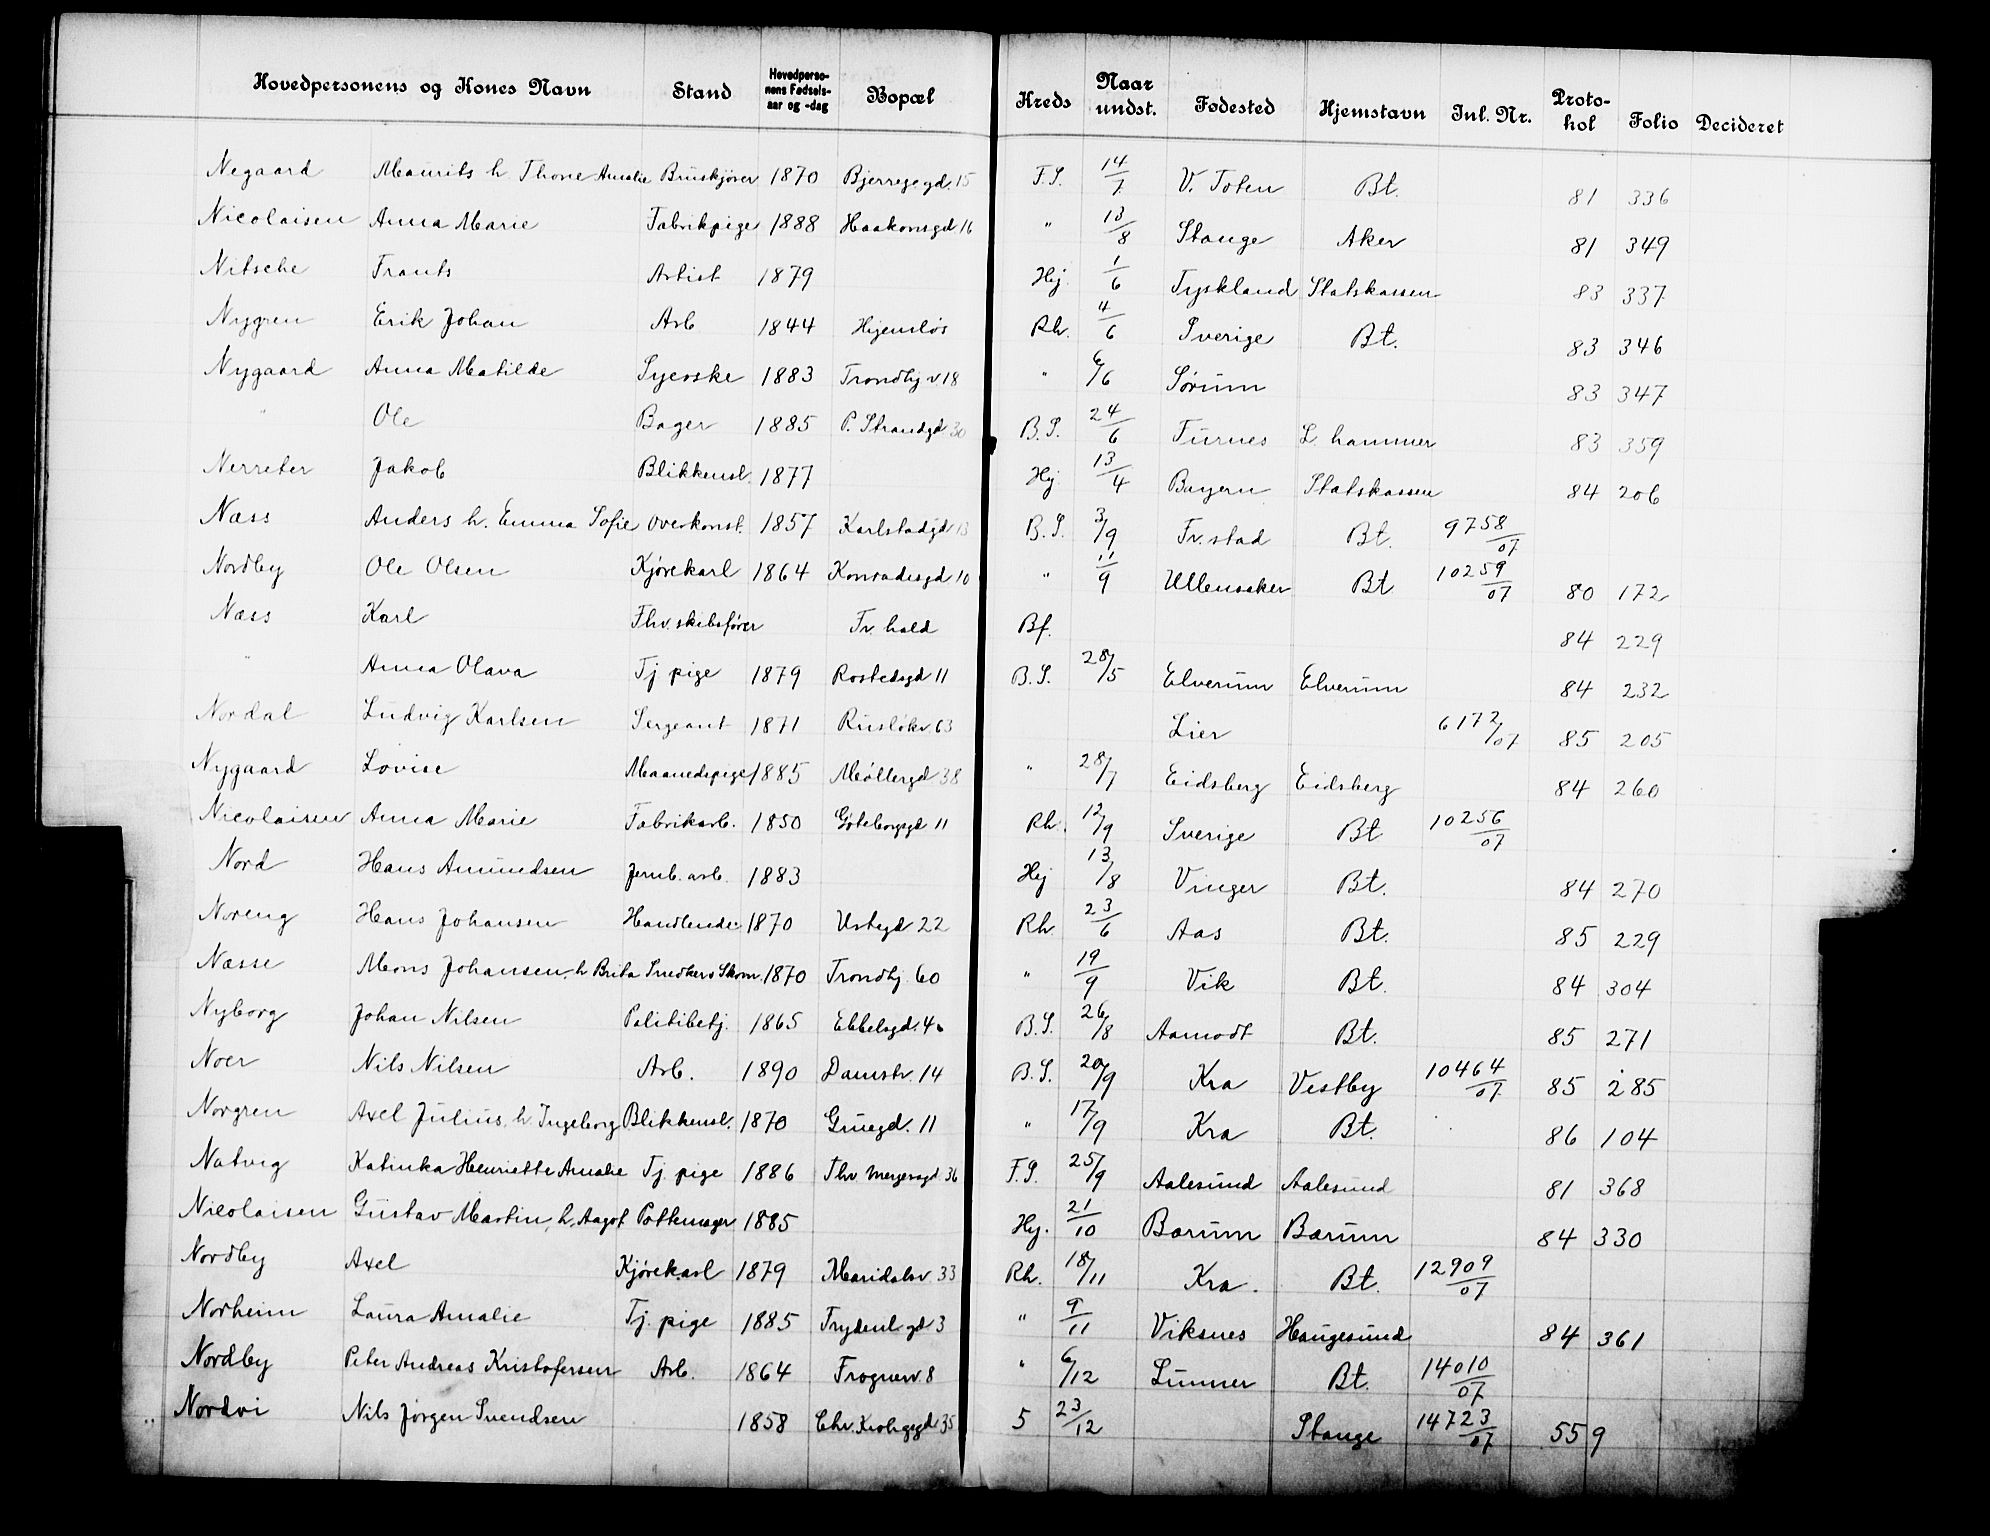 Hovedpersonens og Kones Navn Stand Hovedpersonens Fødselsaar og -dag Bopæl Kreds Naar undst. Fødested Hjemstavn Inl. Nr. Protokol Folio Decideret
Negaard Maurits h Thone Amalie Bruskjører 1870 Bjerregegd. 15 F.S. 14/7 V. Toten Bt. 81 336
Nicolaisen Anna Marie Fabrikpige 1888 Haakonsgd 16 " 13/8 Stange Aker 81 349
Nitsche Frants Artist 1879 Hj 1/6 Tyskland Statskassen 83 337
Nygren Erik Johan Arb 1844 Hjemsløs Rh. 4/6 Sverige Bt. 83 346
Nygaard Anna Matilde Syerske 1883 Trondhj v 18 " 6/6 Sørum 83 347
" Ole Bager 1885 P. Strandgd 30 B.S. 24/6 Furnes L. hammer 83 359
Nerreter Jakob Blikkensl. 1877 Hj 13/4 Bayern Statskassen 84 206
Næss Anders h. Emma Sofie Overkonst. 1857 Karlstadgd 13 B.S. 3/9 Fr.stad Bt. 9758/07
Nordby Ole Olsen Kjørekarl 1864 Konradisgd 10 " 11/9 Ullensaker Bt 10259/07 80 172
Næss Karl Fhv. skibsfører Fr. hald Bf. 84 229
" Anna Olava Tj pige 1879 Rostedsgd 11 B.S. 28/5 Elverum Elverum 84 232
Nordal Ludvig Karlsen Sergeant 1871 Rusløkv. 63 Lier 6172/07 85 205
Nygaard Lovise Maanedspige 1885 Møllergd 38 " 28/7 Eidsberg Eidsberg 84 260
Nicolaisen Anna Marie Fabrikarb. 1850 Gøteborggd 11 Rh 12/9 Sverige Bt 10256/07
Nord Hans Amundsen Jernb. arb. 1883 Hj 13/8 Vinger Bt. 84 270
Noreng Hans Johansen Handlende 1870 Urtegd 22 Rh 23/6 Aas Bt. 85 229
Næsse Mons Johansen, h Brita Snedkers Skom. 1870 Trondhj. 60 " 19/9 Vik Bt. 84 304
Nyborg Johan Nilsen Politibetj. 1865 Ebbelsgd. B.S. 26/8 Aamodt Bt. 85 271
Noer Nils Nilsen Arb. 1890 Damstr. 14 B.S. 20/9 Kra Vestby 10464/07 85 285
Norgren Axel Julius, h. Ingeborg Blikkensl. 1870 Gruegd. 11 " 17/9 Kra Bt. 86 104
Natvig Katinka Henriette Amalie Tj. pige 1886 Thv. Meyersgd. 36 F.S. 25/9 Aalesund Aalesund 81 368
Nicolaisen Gustav Martin, h. Aagot Pottemager 1885 Hj. 21/10 Bærum Bærum 84 330
Nordby Axel Kjørekarl 1879 Maridalsv. 33 Rh. 18/11 Kra. Bt. 12909/07
Norheim Laura Amalie Tj. pige 1885 Frydenl. gd 3 " 9/11 Viksnes Haugesund 84 361
Nordby Peter Andreas Kristofersen Arb. 1864 Frognerv. 8 " 6/12 Lunner Bt. 14010/07
Nordvi Nils Jørgen Svendsen 1858 Chr. Krohgsgd. 35 5 23/12 Stange 14723/07 559